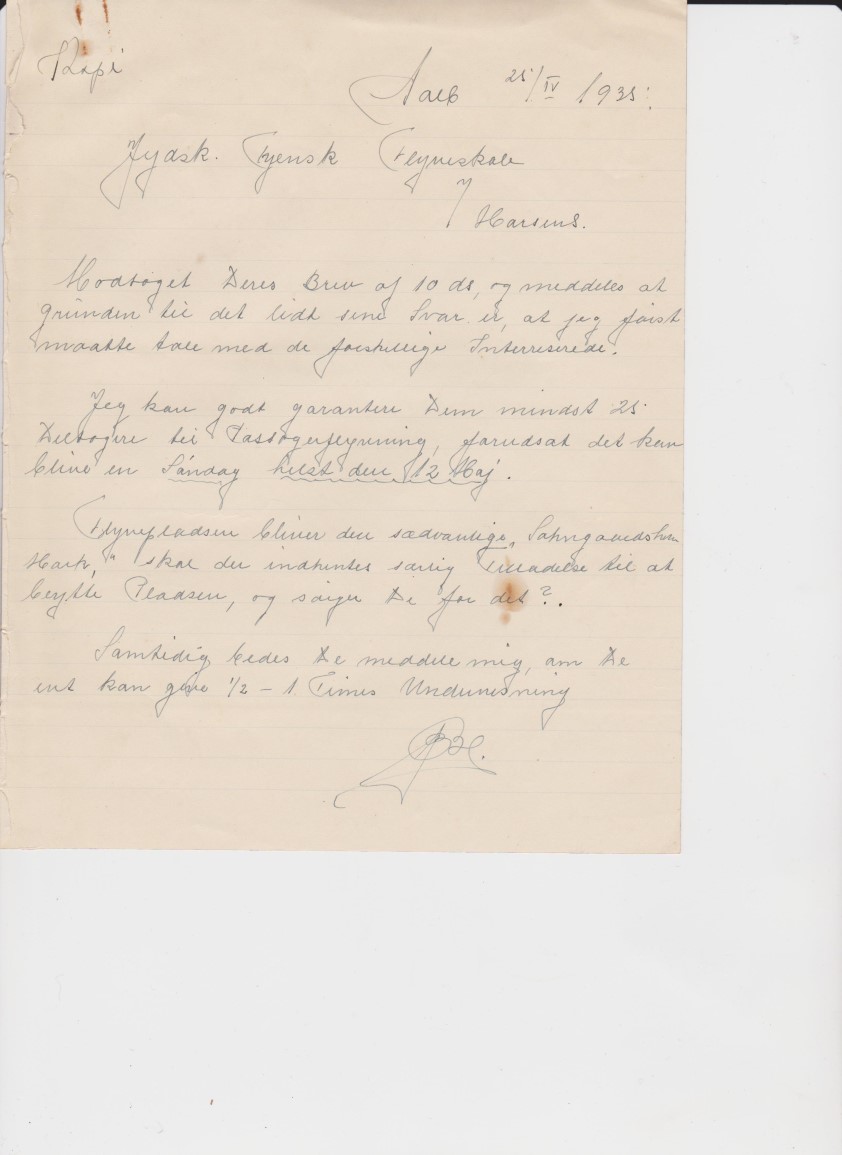 Kopi
Aalb 25/IV 1935.
Jydsk. Fyensk Flyveskole
Horsens.
Modtaget Deres Brev af 10 ds, og meddeles at
Grunden til det lidt sene Svar er, at jeg først
maatte tale med de forskellige Interreserede.
Jeg kan godt garantere Dem mindst 25
Deltagere til Passagerflyvning, forudsat det kan
blive en Søndag helst den 12 Maj.
Flyvepladsen bliver den sædvanlige
Mark," skal der indhentes særlig Tilladelse til at
benytte Pladsen, og sørger De for det?.
Samtidig bedes De meddele mig, om De
evt kan give 1/2 – 1. Times Undervisning